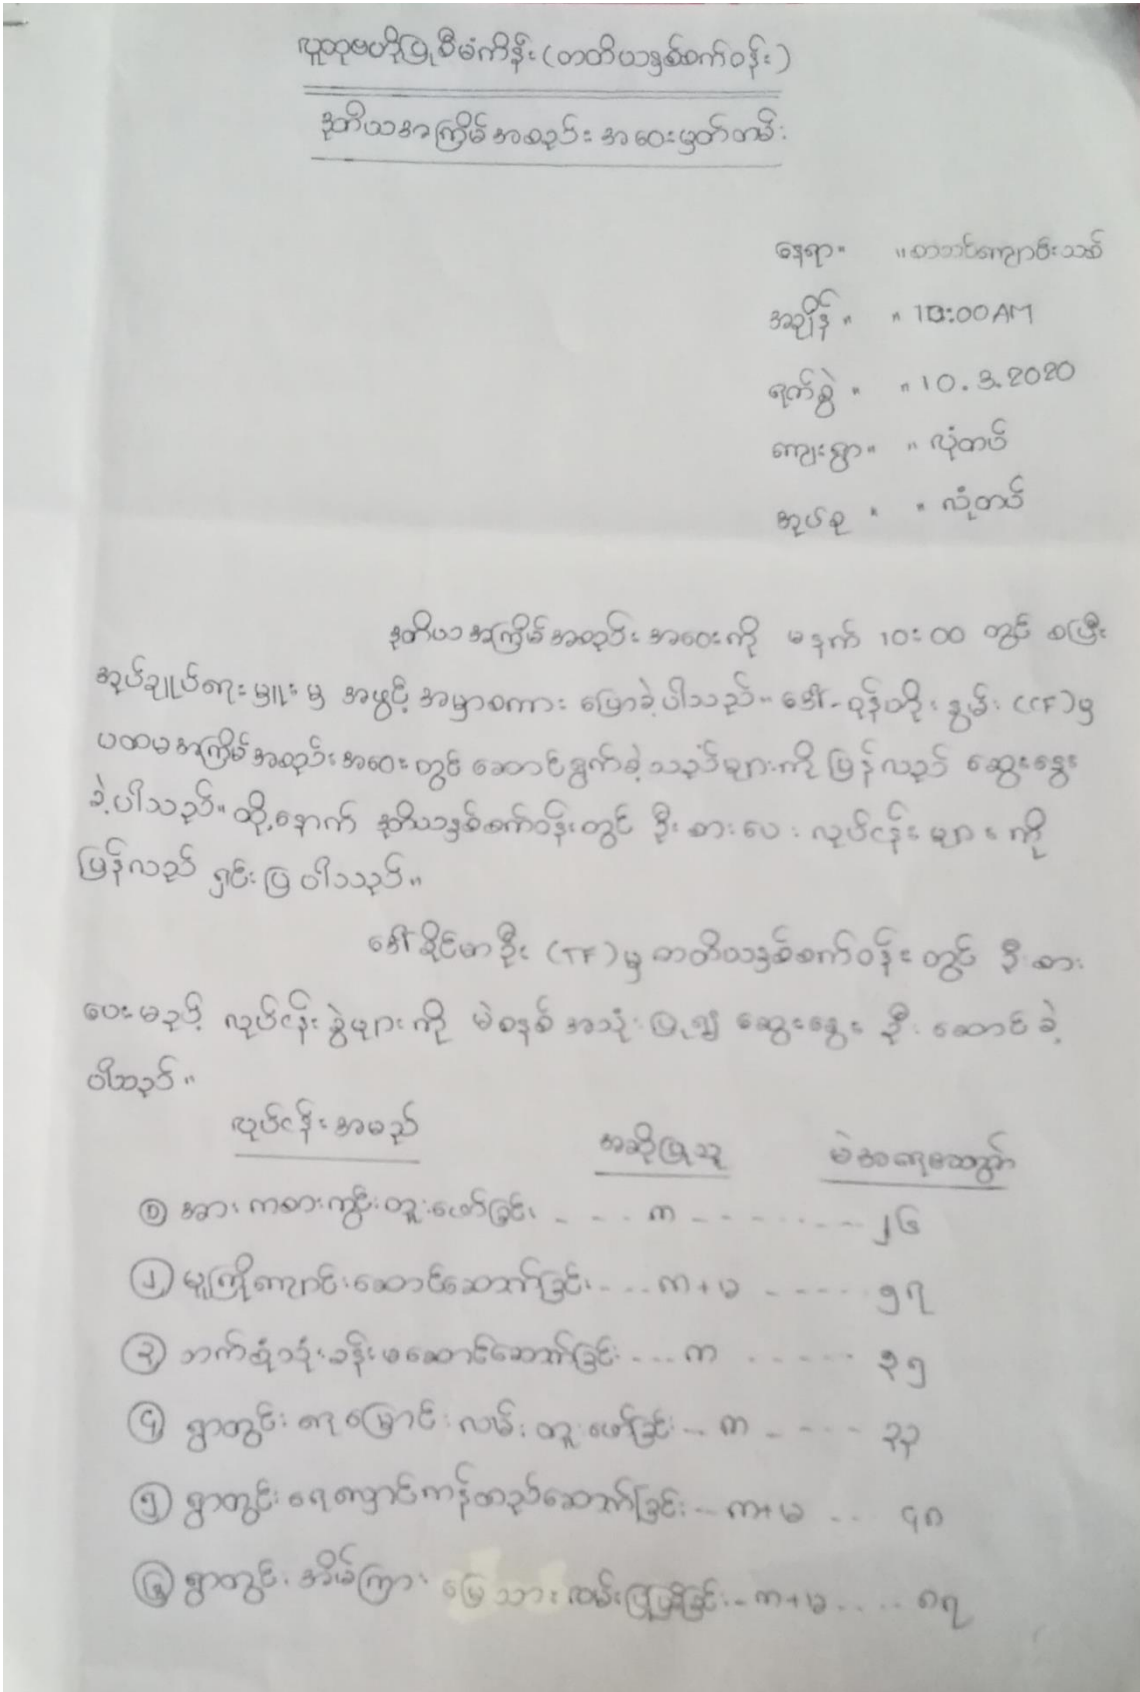 လူထုဗဟိုပြုစီမံကိန်း(တတိယနှစ်စက်ဝန်း)
ဒုတိယအကြိမ်အစည်းအဝေးမှတ်တမ်း
နေရာ။ ။စာသင်ကျောင်းသစ်
အချိန်။ ။10:00AM
ရက်စွဲ။ ။10.3.2020
ကျေးရွာ။ ။လုံတယ်
အုပ်စု။ ။လုံတယ်
ဒုတိယအကြိမ်အစည်းအဝေးကို မနက် 10:00 တွင် စပြီး
အုပ်ချုပ်ရေးမှူးမှ အဖွင့်အမှာစကား ပြောခဲ့ပါသည်။ ဒေါ် (CF)မှ
ပထမအကြိမ်အစည်းအဝေးတွင် ဆောင်ရွက်ခဲ့သည်များကို ပြန်လည် ဆွေးနွေး
ခဲ့ပါသည်။ ထို့နောက် ဒုတိယနှစ်စက်ဝန်းတွင် ဦးစားပေး လုပ်ငန်းများကို
ပြန်လည် ရှင်းပြပါသည်။
ဒေါ်ခိုင်မာဦး (TF)မှ တတိယနှစ်စက်ဝန်းတွင် ဦးစား
ပေးမည့် လုပ်ငန်းခွဲများကို မဲစနစ်အသုံးပြု၍ ဆွေးနွေး ဦးဆောင်ခဲ့
ပါသည်။
လုပ်ငန်းအမည် အဆိုပြုသူ မဲအရေအတွက်
၁ အားကစားကွင်းတူးဖော်ခြင်း - - - က - - - - - - - ၂၆
၂ မူကြိုကျောင်းဆောင်ဆောက်ခြင်း - - - က+မ - - - - - ၅၇
၃ ဘက်စုံသုံးခန်းမဆောင်ဆောက်ခြင်း - - - က - - - - - - ၃၅
၄ ရွာတွင်းရေမြောင်းလမ်းတူးဖော်ခြင်း - - က - - - - - ၃၃
၅ ရွာတွင်းရေလှောင်ကန်တည်ဆောက်ခြင်း - - က+မ - - - ၄၈
၆ ရွာတွင်းအိမ်ကြားမြေသားလမ်းပြုပြင်ခြင်း - - က+မ - - - - ၈၇